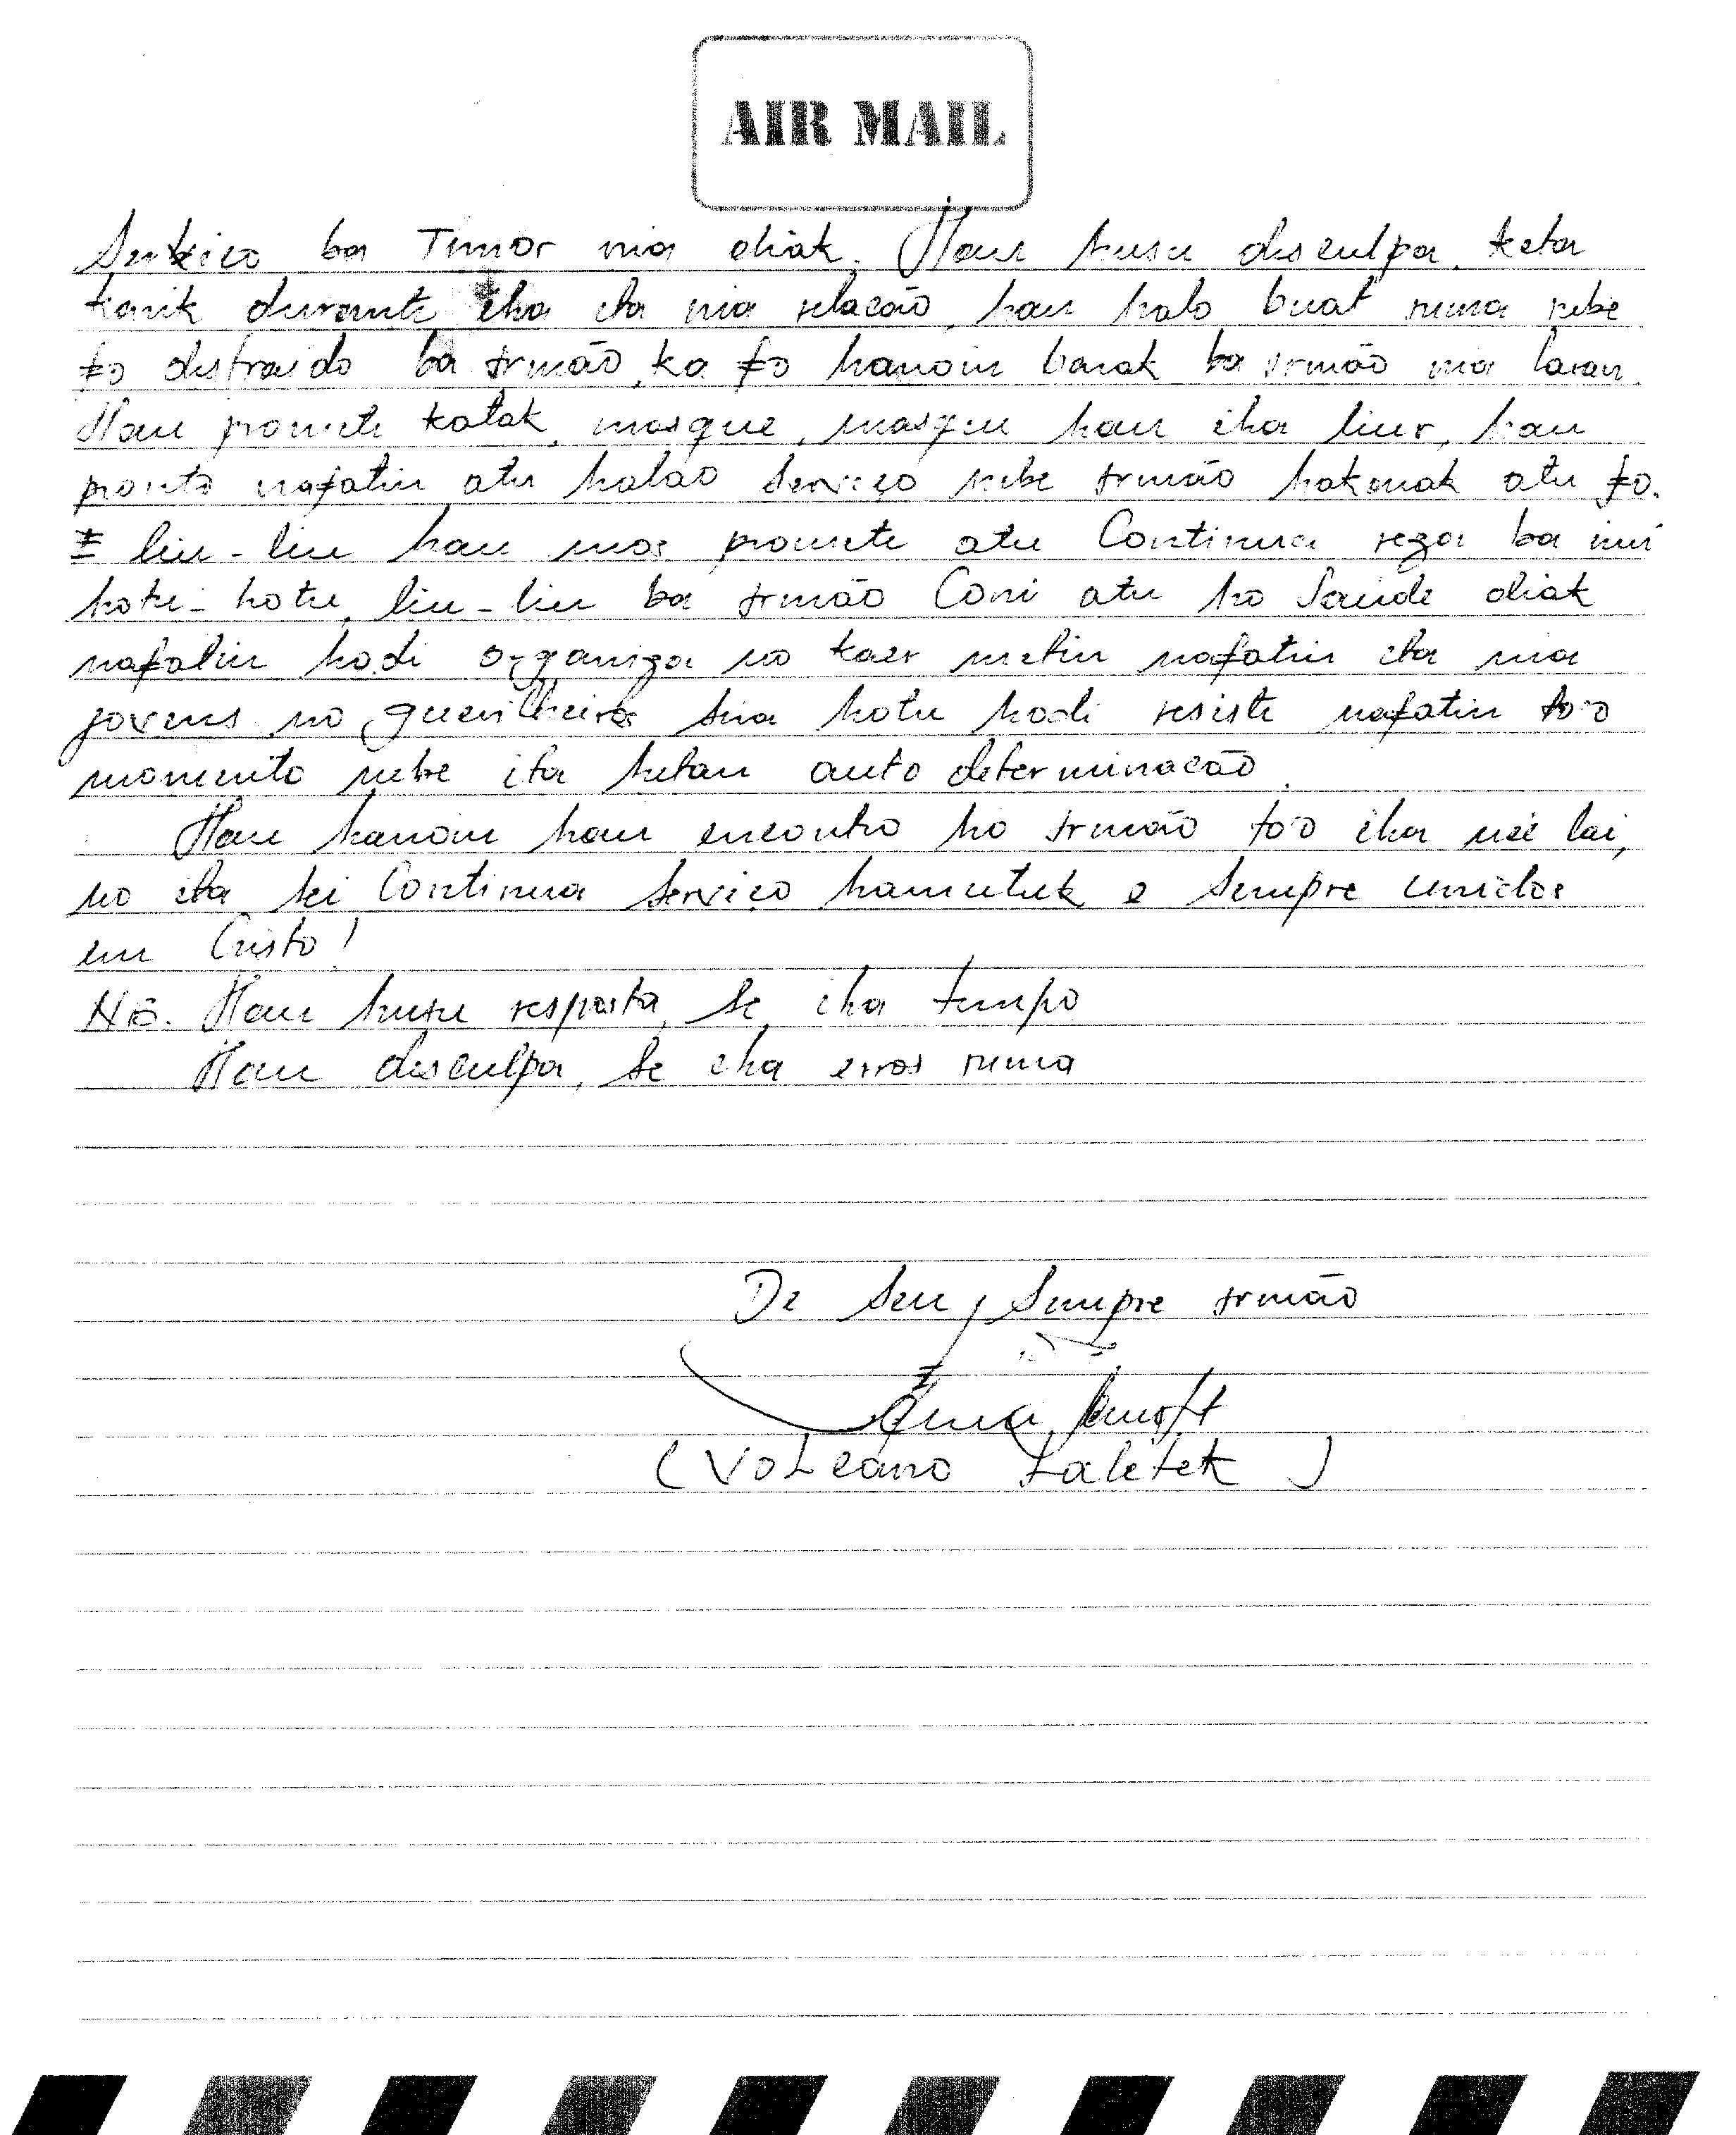 AIR MAIL
Serviço ba Timor nia diak. Hau husu disculpa, keta
karik durante iha ita nia relacão, hau halo buat ruma nebe
fo distraido ba irmão, ka fo hanoin barak ba irmão nia laran.
Hau promete katak, masque, masque hau iha liur, hau
pronto nafatin atu halao serviço nebe irmão hakmak atu fo.
I liu-liu hau mos promete atu Continua reza ba imi
hotu-hotu, liu-liu ba irmão Coni atu ho Saude diak
nafatin hodi organiza no kaer metin nafatin ita nia
jovens no guerilheiros sira hotu hodi resiste nafatin to'o
momento nebe ita hetan auto determinacão.
Hau hanoin hau encontro ho irmão to'o iha ne'e lai,
no ita sei Continua serviço hamutuk e Sempre unidos
em Cristo!
NB. Hau husu resposta, se iha tempo
Hau disculpa, se iha erros ruma
De seu, Sempre irmão
(Volcano Laletek)